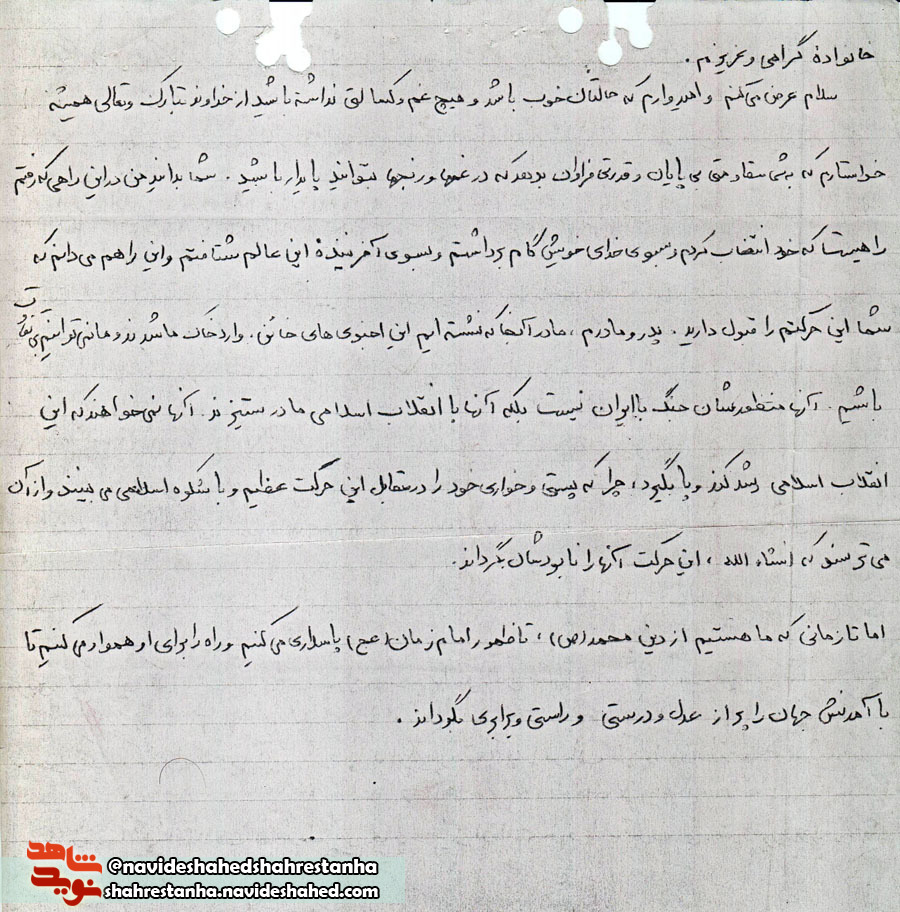 خانوادهٔ گرامی و عزیزم.
سلام عرض می‌کنم و امیدوارم که حالتان خوب باشد و هیچ غم و کسالتی نداشته باشید از خداوند تبارک و تعالی همیشه
خواستارم که به شما مقاومتی بی پایان و قدرتی فراوان بدهد که در غمها و رنجها بتوانید پایدار باشید. شما بدانید من در این راهی که رفتم
راهیست که خود انتخاب کردم و بسوی خدای خویش گام برداشتم و بسوی آفرینندهٔ این عالم شتافتم و این را هم می‌دانم که
شما این حرکتم را قبول دارید. پدر و مادرم، ما در آنجا که نشسته ایم این اجنبی های خائن. وارد خاک ما شدند و ما نمی‌توانیم بی تفاوت
باشیم. آنها منظورشان جنگ با ایران نیست بلکه آنها با انقلاب اسلامی ما در ستیزند. آنها نمی‌خواهند که این
انقلاب اسلامی رشد کند و پا بگیرد، چرا که پستی و خواری خود را در مقابل این حرکت عظیم و با شکوه اسلامی می بینند و از آن
می ترسند که انشاء الله، این حرکت آنها را نابودشان بگرداند.
اما تا زمانی که ما هستیم از دین محمد (ص)، تا ظهور امام زمان (عج) پاسداری می‌کنیم و راه را برای او هموار می‌کنیم تا
با آمدنش جهان را پر از عدل و درستی و راستی و برابری بگرداند.
نوید شاهد
@navideshahedshahrestanha
shahrestanha.navideshahed.com